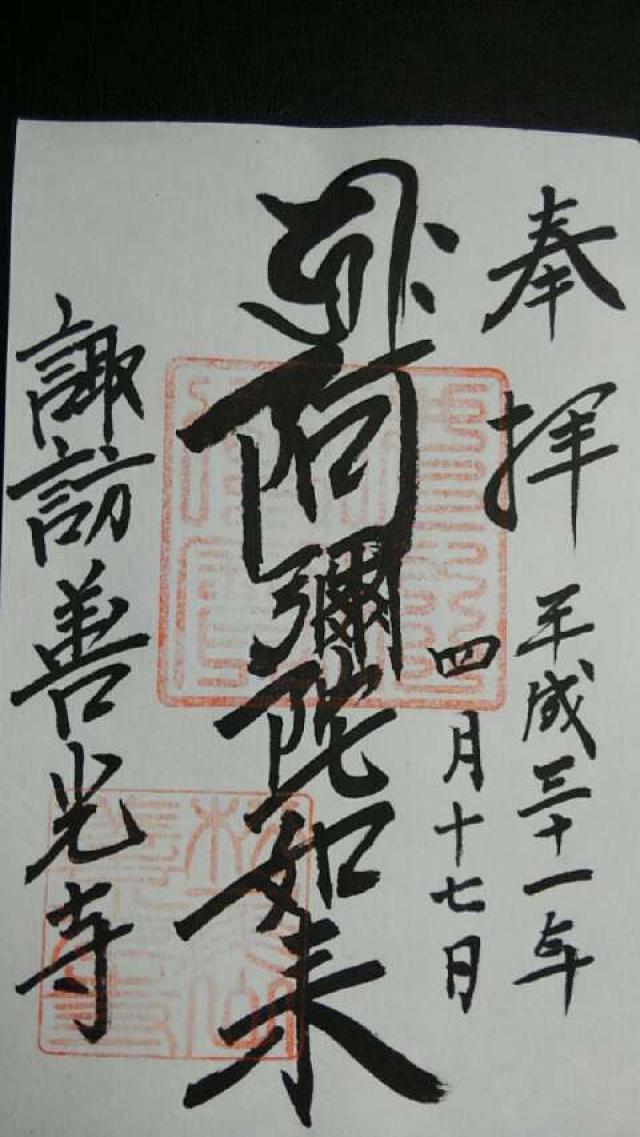 奉拝
平成三十一年
四月十七日
阿彌陀如来
諏訪善光寺